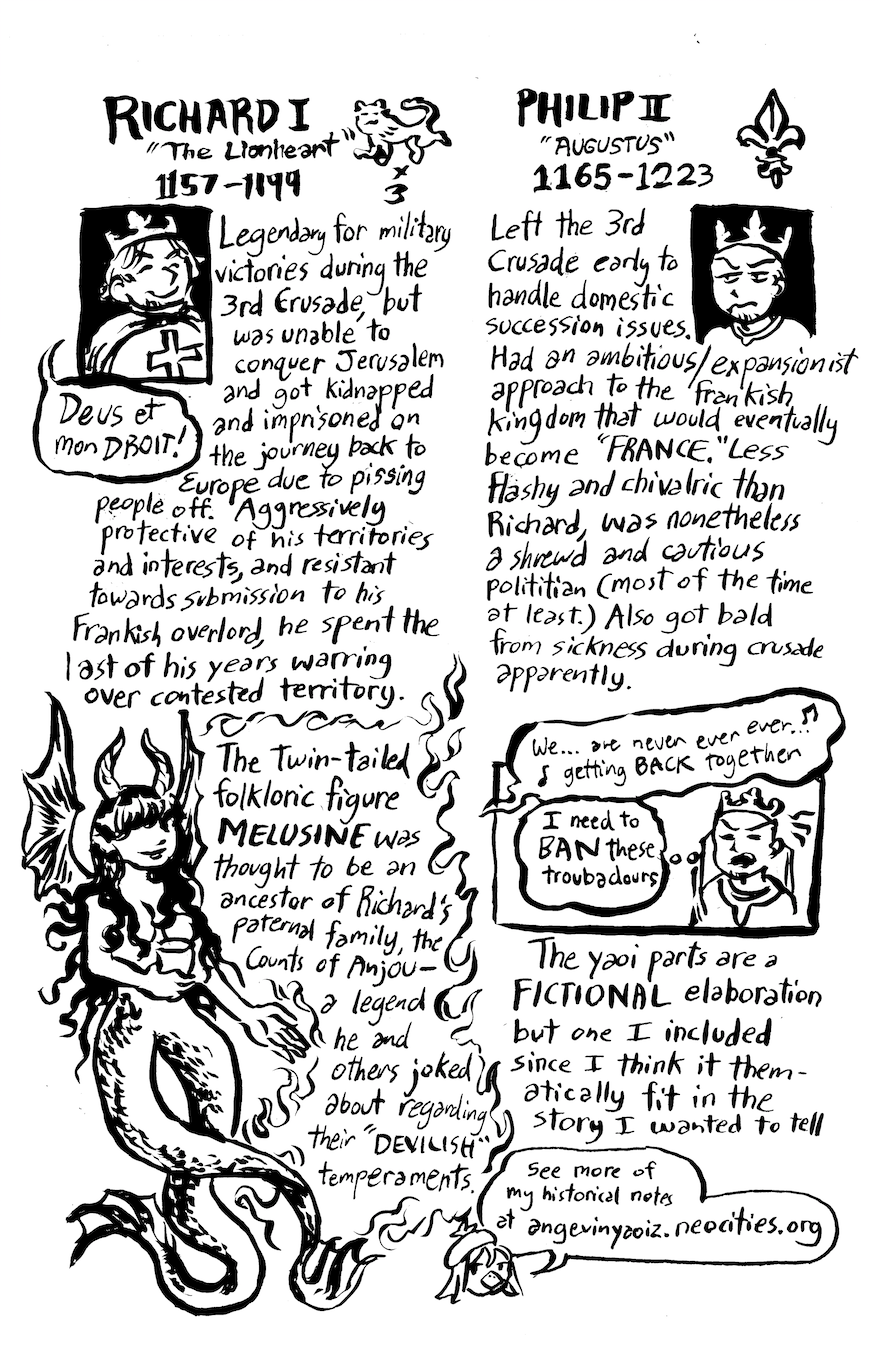 RICHARD I
"The Lionheart"
1157-1199
x
3
Legendary for military
victories during the
3rd Crusade, but
was unable to
conquer Jerusalem
and got kidnapped
and imprisoned on
the journey back to
Europe due to pissing
people off. Aggressively
protective of his territories
and interests, and resistant
towards submission to his
Frankish overlord, he spent the
last of his years warring
over contested territory.
Deus et
mon DROIT!
The Twin-tailed
folkloric figure
MELUSINE was
thought to be an
ancestor of Richard's
paternal family, the
Counts of Anjou—
a legend
he and
others joked
about regarding
their "DEVILISH"
temperaments.
PHILIP II
"AUGUSTUS"
1165-1223
Left the 3rd
Crusade early to
handle domestic
succession issues.
Had an ambitious/expansionist
approach to the frankish
kingdom that would eventually
become "FRANCE." Less
flashy and chivalric than
Richard, was nonetheless
a shrewd and cautious
polititian (most of the time
at least.) Also got bald
from sickness during crusade
apparently.
We... are never ever ever...
getting BACK together
I need to
BAN these
troubadours
The yaoi parts are a
FICTIONAL elaboration
but one I included
since I think it them-
atically fit in the
story I wanted to tell
See more of
my historical notes
at angevinyaoiz.neocities.org